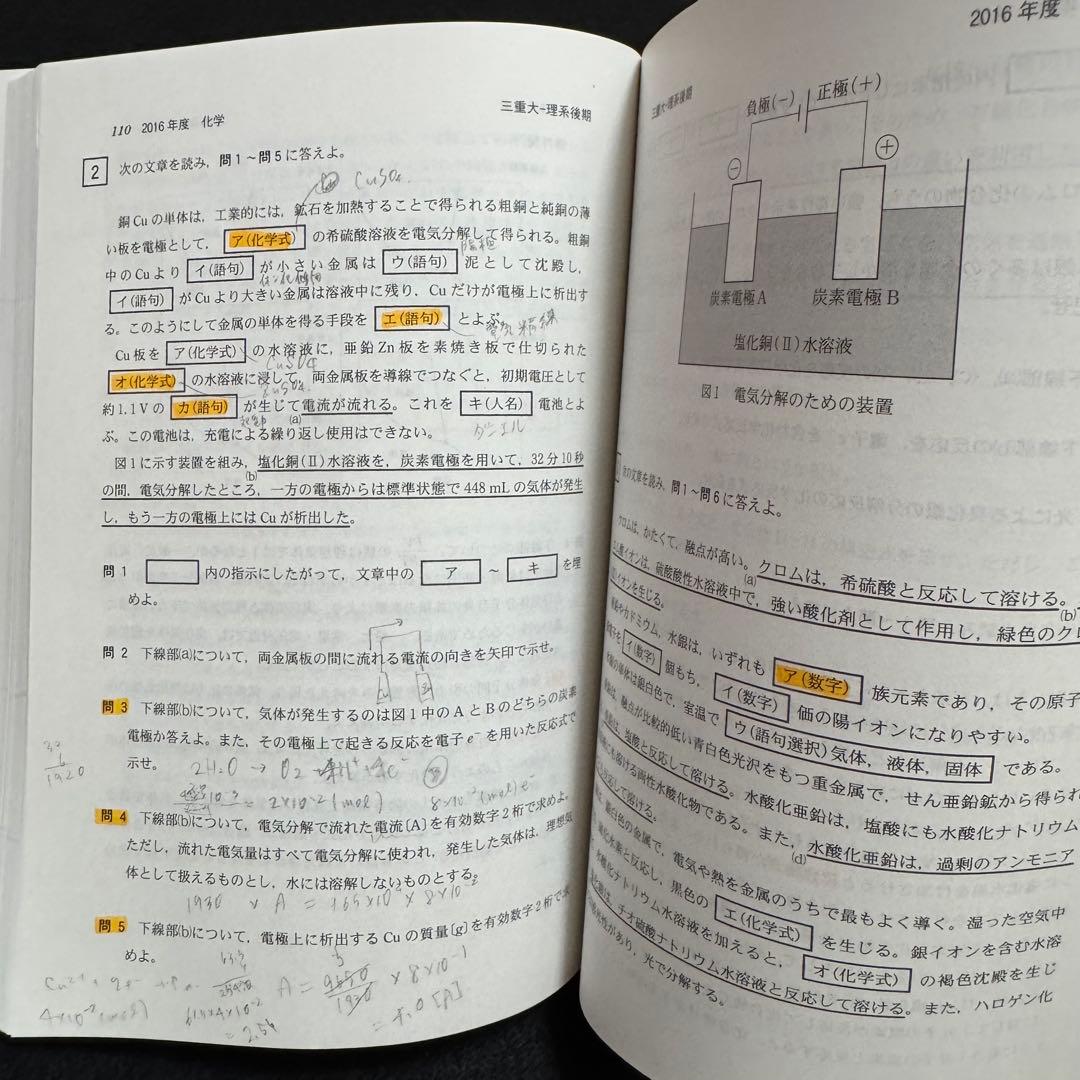 110 2016年度 化学
三重大-理系後期
2 次の文章を読み，問1～問5に答えよ。
CuSO4.
銅Cuの単体は，工業的には，鉱石を加熱することで得られる粗銅と純銅の薄
い板を電極として， ア(化学式) の希硫酸溶液を電気分解して得られる。粗銅
陽極
中のCuより イ(語句) が小さい金属は ウ(語句) 泥として沈殿し，
イオン化傾向
イ(語句) がCuより大きい金属は溶液中に残り，Cuだけが電極上に析出す
る。このようにして金属の単体を得る手段を エ(語句) とよぶ。
電気精錬
Cu板を ア(化学式) の水溶液に，亜鉛Zn板を素焼き板で仕切られた
CuSO4
オ(化学式) の水溶液に浸して，両金属板を導線でつなぐと，初期電圧として
ZnSO4
約1.1Vの カ(語句) が生じて電流が流れる。これを キ(人名) 電池とよ
起電力
(a)
ダニエル
ぶ。この電池は，充電による繰り返し使用はできない。
図1に示す装置を組み，塩化銅(Ⅱ)水溶液を，炭素電極を用いて，32分10秒
(b)
の間，電気分解したところ，一方の電極からは標準状態で448 mLの気体が発生
し，もう一方の電極上にはCuが析出した。
問1 内の指示にしたがって，文章中の ア ～ キ を埋
めよ。
問2 下線部(a)について，両金属板の間に流れる電流の向きを矢印で示せ。
問3 下線部(b)について，気体が発生するのは図1中のAとBのどちらの炭素
電極か答えよ。また，その電極上で起きる反応を電子e⁻を用いた反応式で
示せ。
2H2O → O2 + 4H⁺ + 4e⁻
32
6
1920
= 2×10⁻² (mol)
8×10⁻² (mol) e⁻
問4 下線部(b)について，電気分解で流れた電流〔A〕を有効数字2桁で求めよ。
ただし，流れた電気量はすべて電気分解に使われ，発生した気体は，理想気
体として扱えるものとし，水には溶解しないものとする。
1930 × A = 9.65×10⁴ × 8×10⁻²
問5 下線部(b)について，電極上に析出するCuの質量〔g〕を有効数字2桁で求
めよ。
Cu²⁺ + 2e⁻ → Cu
4×10⁻² (mol)
63.5×4×10⁻²
= 2.54
A = 9650/1930 × 8×10⁻¹
= 4.0 [A]
2016年度
三重大-理系後期
負極(-) 正極(+)
⊖ ⊕
炭素電極A 炭素電極B
塩化銅(Ⅱ)水溶液
図1 電気分解のための装置
次の文章を読み，問1～問6に答えよ。
クロムは，かたくて，融点が高い。クロムは，希硫酸と反応して溶ける。
(a)
酸イオンは，硫酸酸性水溶液中で，強い酸化剤として作用し，緑色のクロ
(b)
イオンを生じる。
カドミウム，水銀は，いずれも ア(数字) 族元素であり，その原子
イ(数字) 個もち， イ(数字) 価の陽イオンになりやすい。
の単体は銀白色で，室温で ウ(語句選択)気体，液体，固体 である。
は，融点が比較的低い青白色光沢をもつ重金属で，せん亜鉛鉱から得られ
塩酸と反応して溶ける。水酸化亜鉛は，塩酸にも水酸化ナトリウム
にも溶ける両性水酸化物である。また，水酸化亜鉛は，過剰のアンモニア
(d)
応して溶ける。
銀白色の金属で，電気や熱を金属のうちで最もよく導く。湿った空気中
化水素と反応し，黒色の エ(化学式) を生じる。銀イオンを含む水溶
水酸化ナトリウム水溶液を加えると， オ(化学式) の褐色沈殿を生じ
は，チオ硫酸ナトリウム水溶液と反応して溶ける。また，ハロゲン化
光性があり，光で分解する。